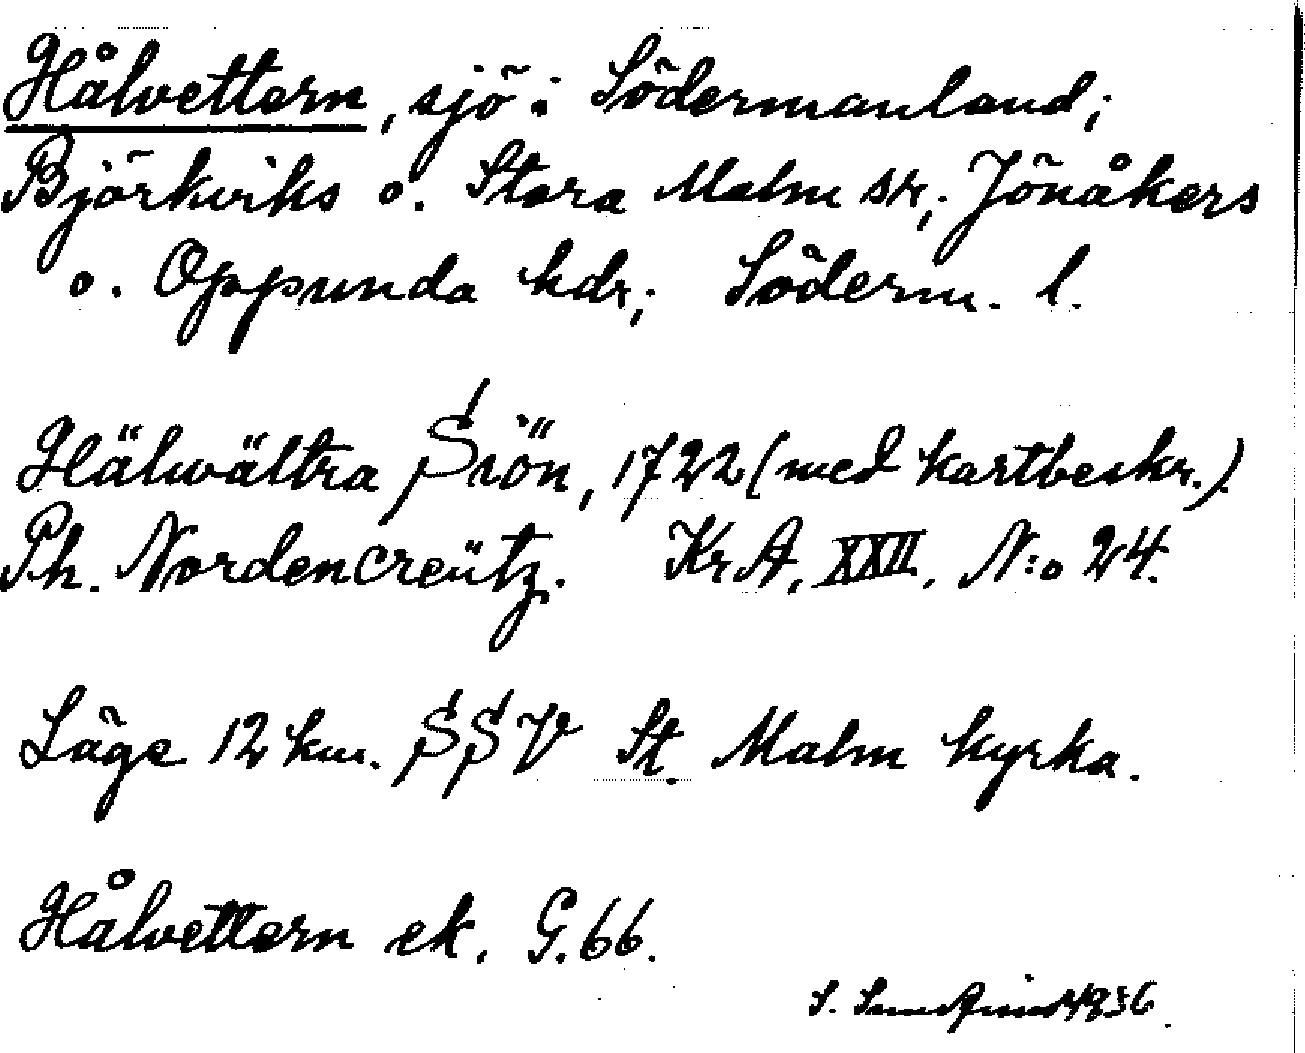 Hålvettern, sjö i Södermanland;
Björkviks o. Stora Malm sk; Jönåkers
o. Oppunda hdr; Söderm. l.
Hälwältra Siön, 1722 (med kartbeskr.)
Ph. Nordencreütz. KrA, XXII, N:o 24.
Läge 12 km. SSV St. Malm kyrka.
Hålvettern ek. G.66.
S. 1936